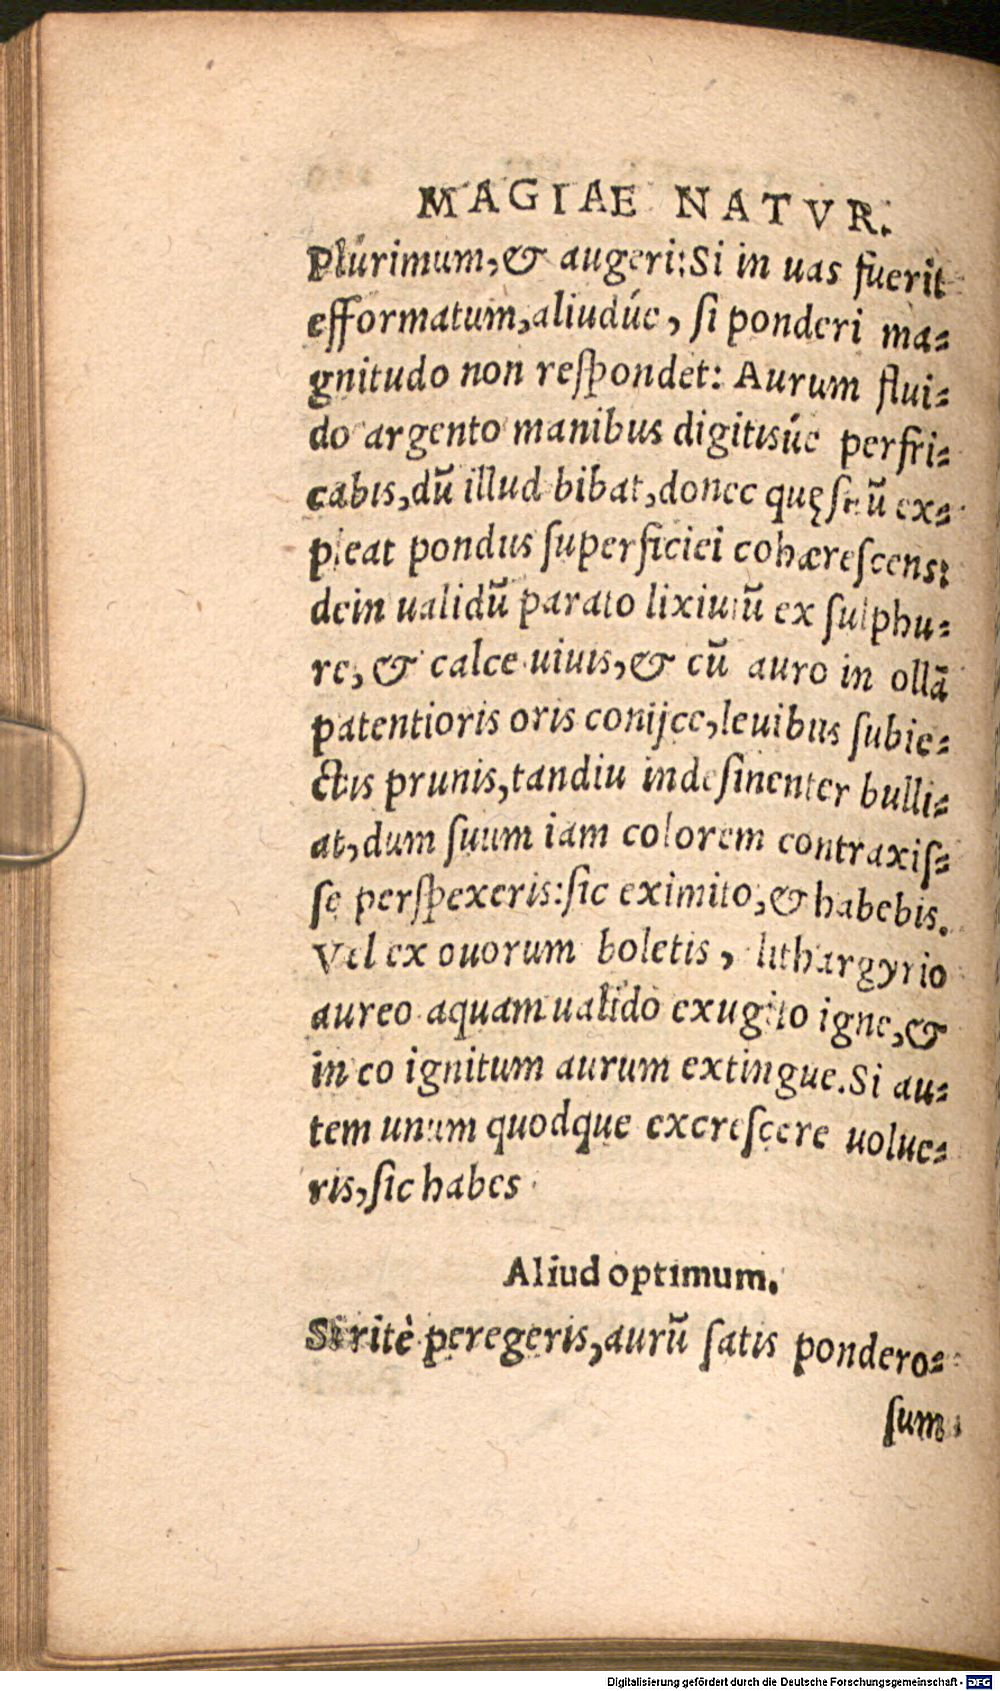 MAGIAE NATVR.
Plurimum,& augeri:Si in uas fuerit
efformatum,aliudúe, ſi ponderi ma-
gnitudo non reſpondet: Aurum flui-
do argento manibus digitisúe perfri-
cabis,dũ illud bibat,donec quęſitũ ex-
pleat pondus ſuperficiei cohærefcens:
dein ualidũ parato lixiuiũ ex ſulphu-
re, & calce uiuis,& cũ auro in ollã
patentioris oris conijce,leuibus ſubie-
ctis prunis,tandiu indeſinenter bulli-
at,dum ſuum iam colorem contraxiſ-
ſe perſpexeris:ſic eximito,& habebis.
Vel ex ouorum boletis, lithargyrio
aureo aquam ualido exugito igne,&
in eo ignitum aurum extingue.Si au-
tem unum quodque excreſcere uolue-
ris,ſic habes
Aliud optimum.
Si ritè peregeris,aurũ ſatis pondero-
ſum
Digitalisierung gefördert durch die Deutsche Forschungsgemeinschaft - DFG